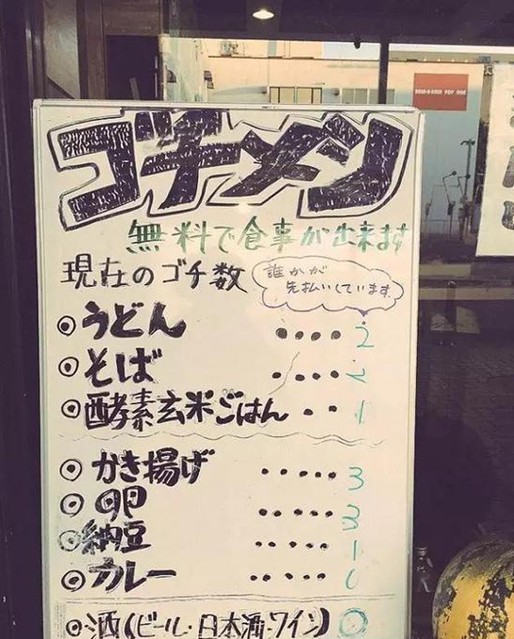 ゴチメン
無料で食事が出来ます
現在のゴチ数
誰かが
先払いしています
◎うどん ････ 2
◎そば ････ 2
◎酵素玄米ごはん ･･ 1
◎かき揚げ ･････ 3
◎卵 ･････ 3
◎納豆 ･････ 1
◎カレー ･････ 0
◎酒(ビール・日本酒・ワイン) 0